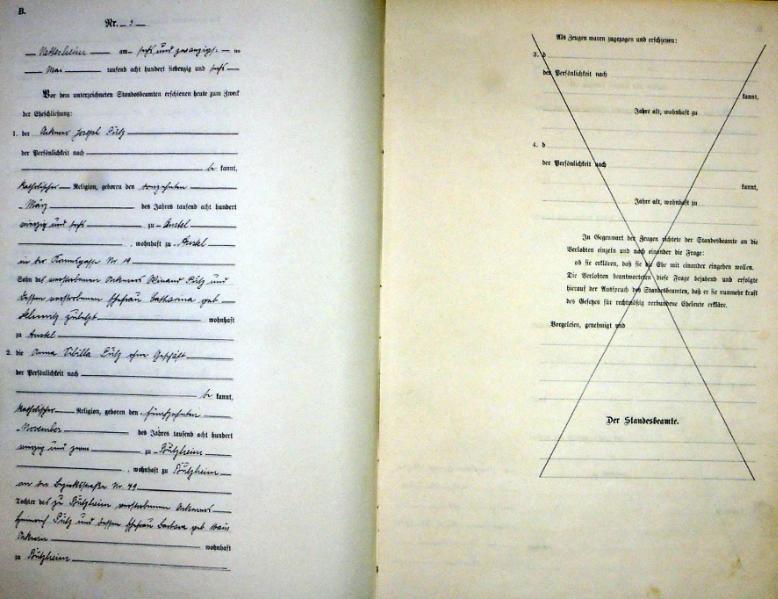 B.
Nr. 3
am sechs und zwanzigsten
Mai tausend acht hundert siebenzig und sechs
Vor dem unterzeichneten Standesbeamten erschienen heute zum Zweck
der Eheschließung:
1. der Ackerer Joseph Pütz
der Persönlichkeit nach
be kannt,
katholischer Religion, geboren den
März des Jahres tausend acht hundert
vierzig und sechs zu
, wohnhaft zu
in der Nr. 19
Sohn des verstorbenen Ackerers Pütz und
dessen verstorbenen Ehefrau Catharina geb.
zuletzt wohnhaft
zu
2. die Anna Sibilla Pütz ohne Geschäft
der Persönlichkeit nach
be kannt,
katholischer Religion, geboren den fünfzehnten
November des Jahres tausend acht hundert
vierzig und zwei zu
, wohnhaft zu
an der Bezirksstraße Nr. 49
Tochter des zu verstorbenen Ackerers
Heinrich Pütz und dessen Ehefrau Barbara geb.
wohnhaft
zu
Als Zeugen waren zugezogen und erschienen:
3. d
der Persönlichkeit nach
kannt,
Jahre alt, wohnhaft zu
4. d
der Persönlichkeit nach
kannt,
Jahre alt, wohnhaft zu
In Gegenwart der Zeugen richtete der Standesbeamte an die
Verlobten einzeln und nach einander die Frage:
ob sie erklären, daß sie die Ehe mit einander eingehen wollen.
Die Verlobten beantworteten diese Frage bejahend und erfolgte
hierauf der Ausspruch des Standesbeamten, daß er sie nunmehr kraft
des Gesetzes für rechtmäßig verbundene Eheleute erkläre.
Vorgelesen, genehmigt und
Der Standesbeamte.